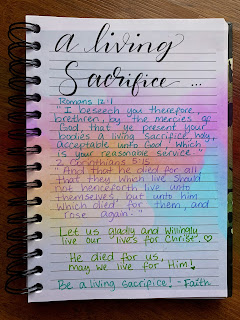 a living
Sacrifice ...
Romans 12:1
"I beseech you therefore,
brethren, by the mercies of
God, that ye present your
bodies a living sacrifice, holy,
acceptable unto God, which
is your reasonable service."
2 Corinthians 5:15
"And that he died for all,
that they which live should
not henceforth live unto
themselves, but unto him
which died for them, and
rose again."
Let us gladly and willingly
live our lives for Christ. ♡
He died for us,
may we live for Him!
Be a living sacrifice! -Faith